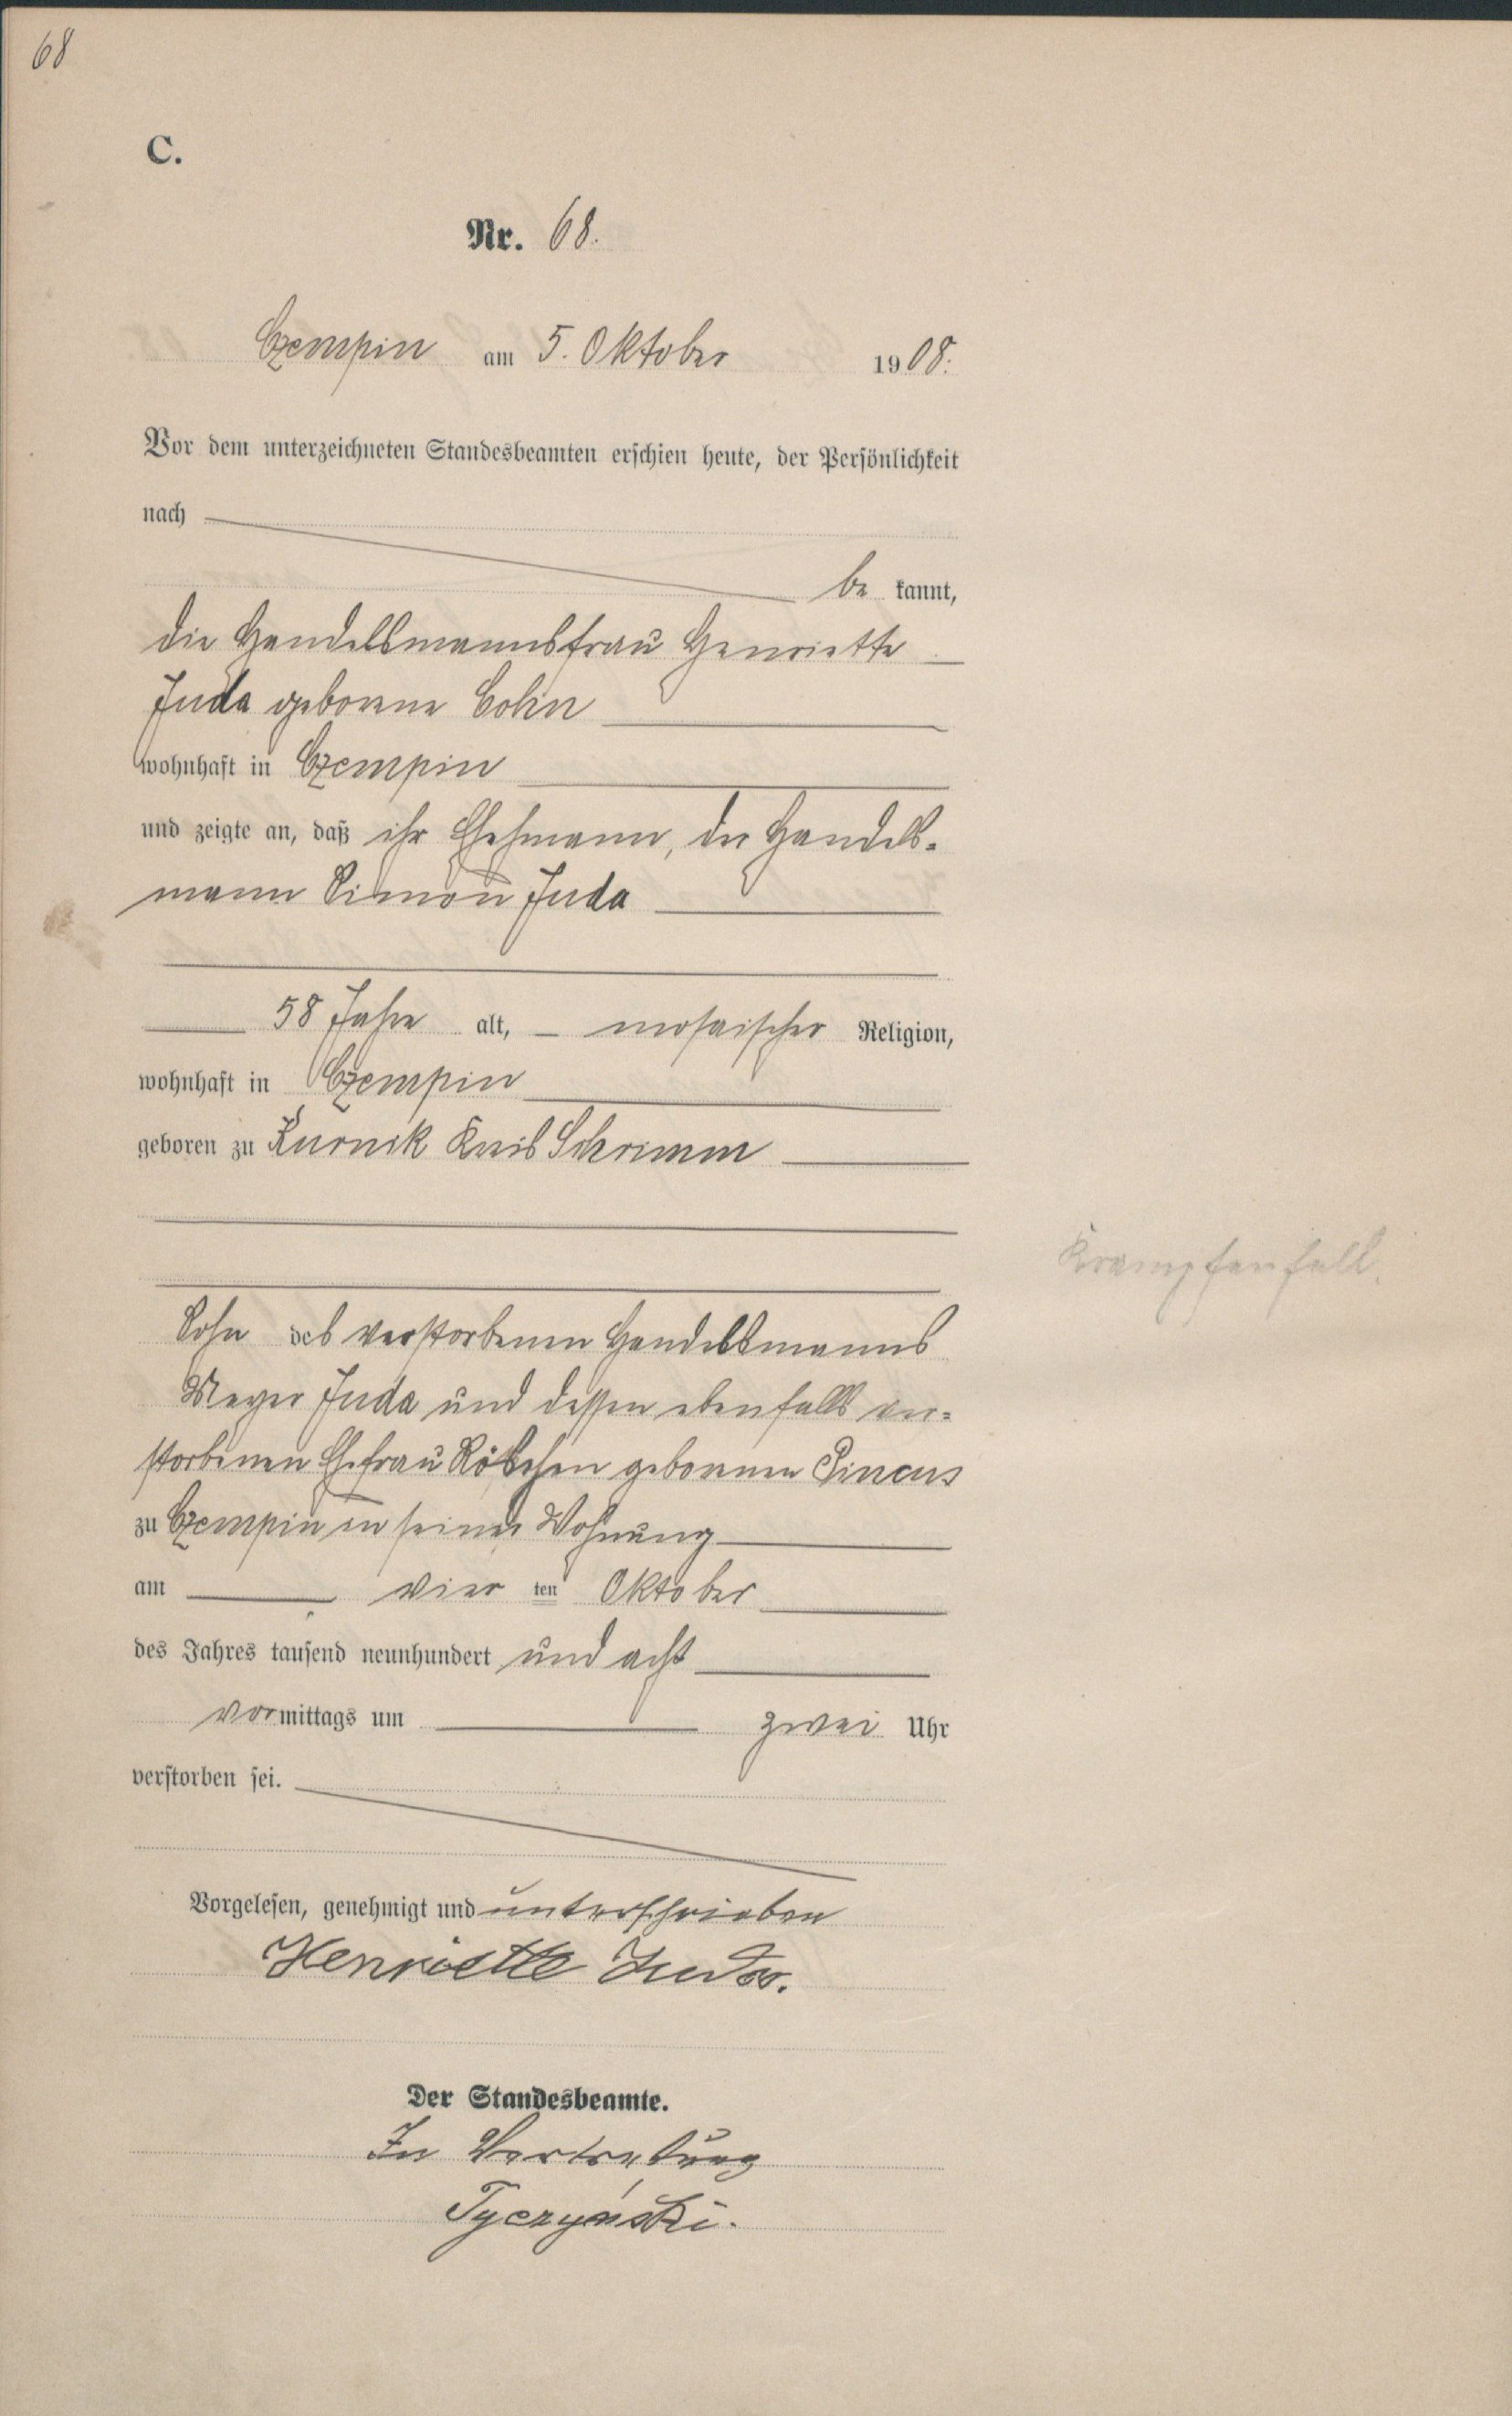 68
C.
Nr. 68.
Czempin am 5. Oktober 1908.
Vor dem unterzeichneten Standesbeamten erschien heute, der Persönlichkeit
nach
be kannt,
die Handelsmannsfrau Henriette
Juda geborene Cohn
wohnhaft in Czempin
und zeigte an, daß ihr Ehemann, der Handels-
mann Simon Juda
58 Jahre alt, mosaischer Religion,
wohnhaft in Czempin
geboren zu Kurnik Kreis Schrimm
Krampfanfall.
Sohn des verstorbenen Handelsmanns
Meyer Juda und dessen ebenfalls ver-
storbenen Ehefrau Röschen geborenen Pincus
zu Czempin in seiner Wohnung
am vier ten Oktober
des Jahres tausend neunhundert und acht
vormittags um zwei Uhr
verstorben sei.
Vorgelesen, genehmigt und unterschrieben
Henriette Juda.
Der Standesbeamte.
In Vertretung
Tyczyński.